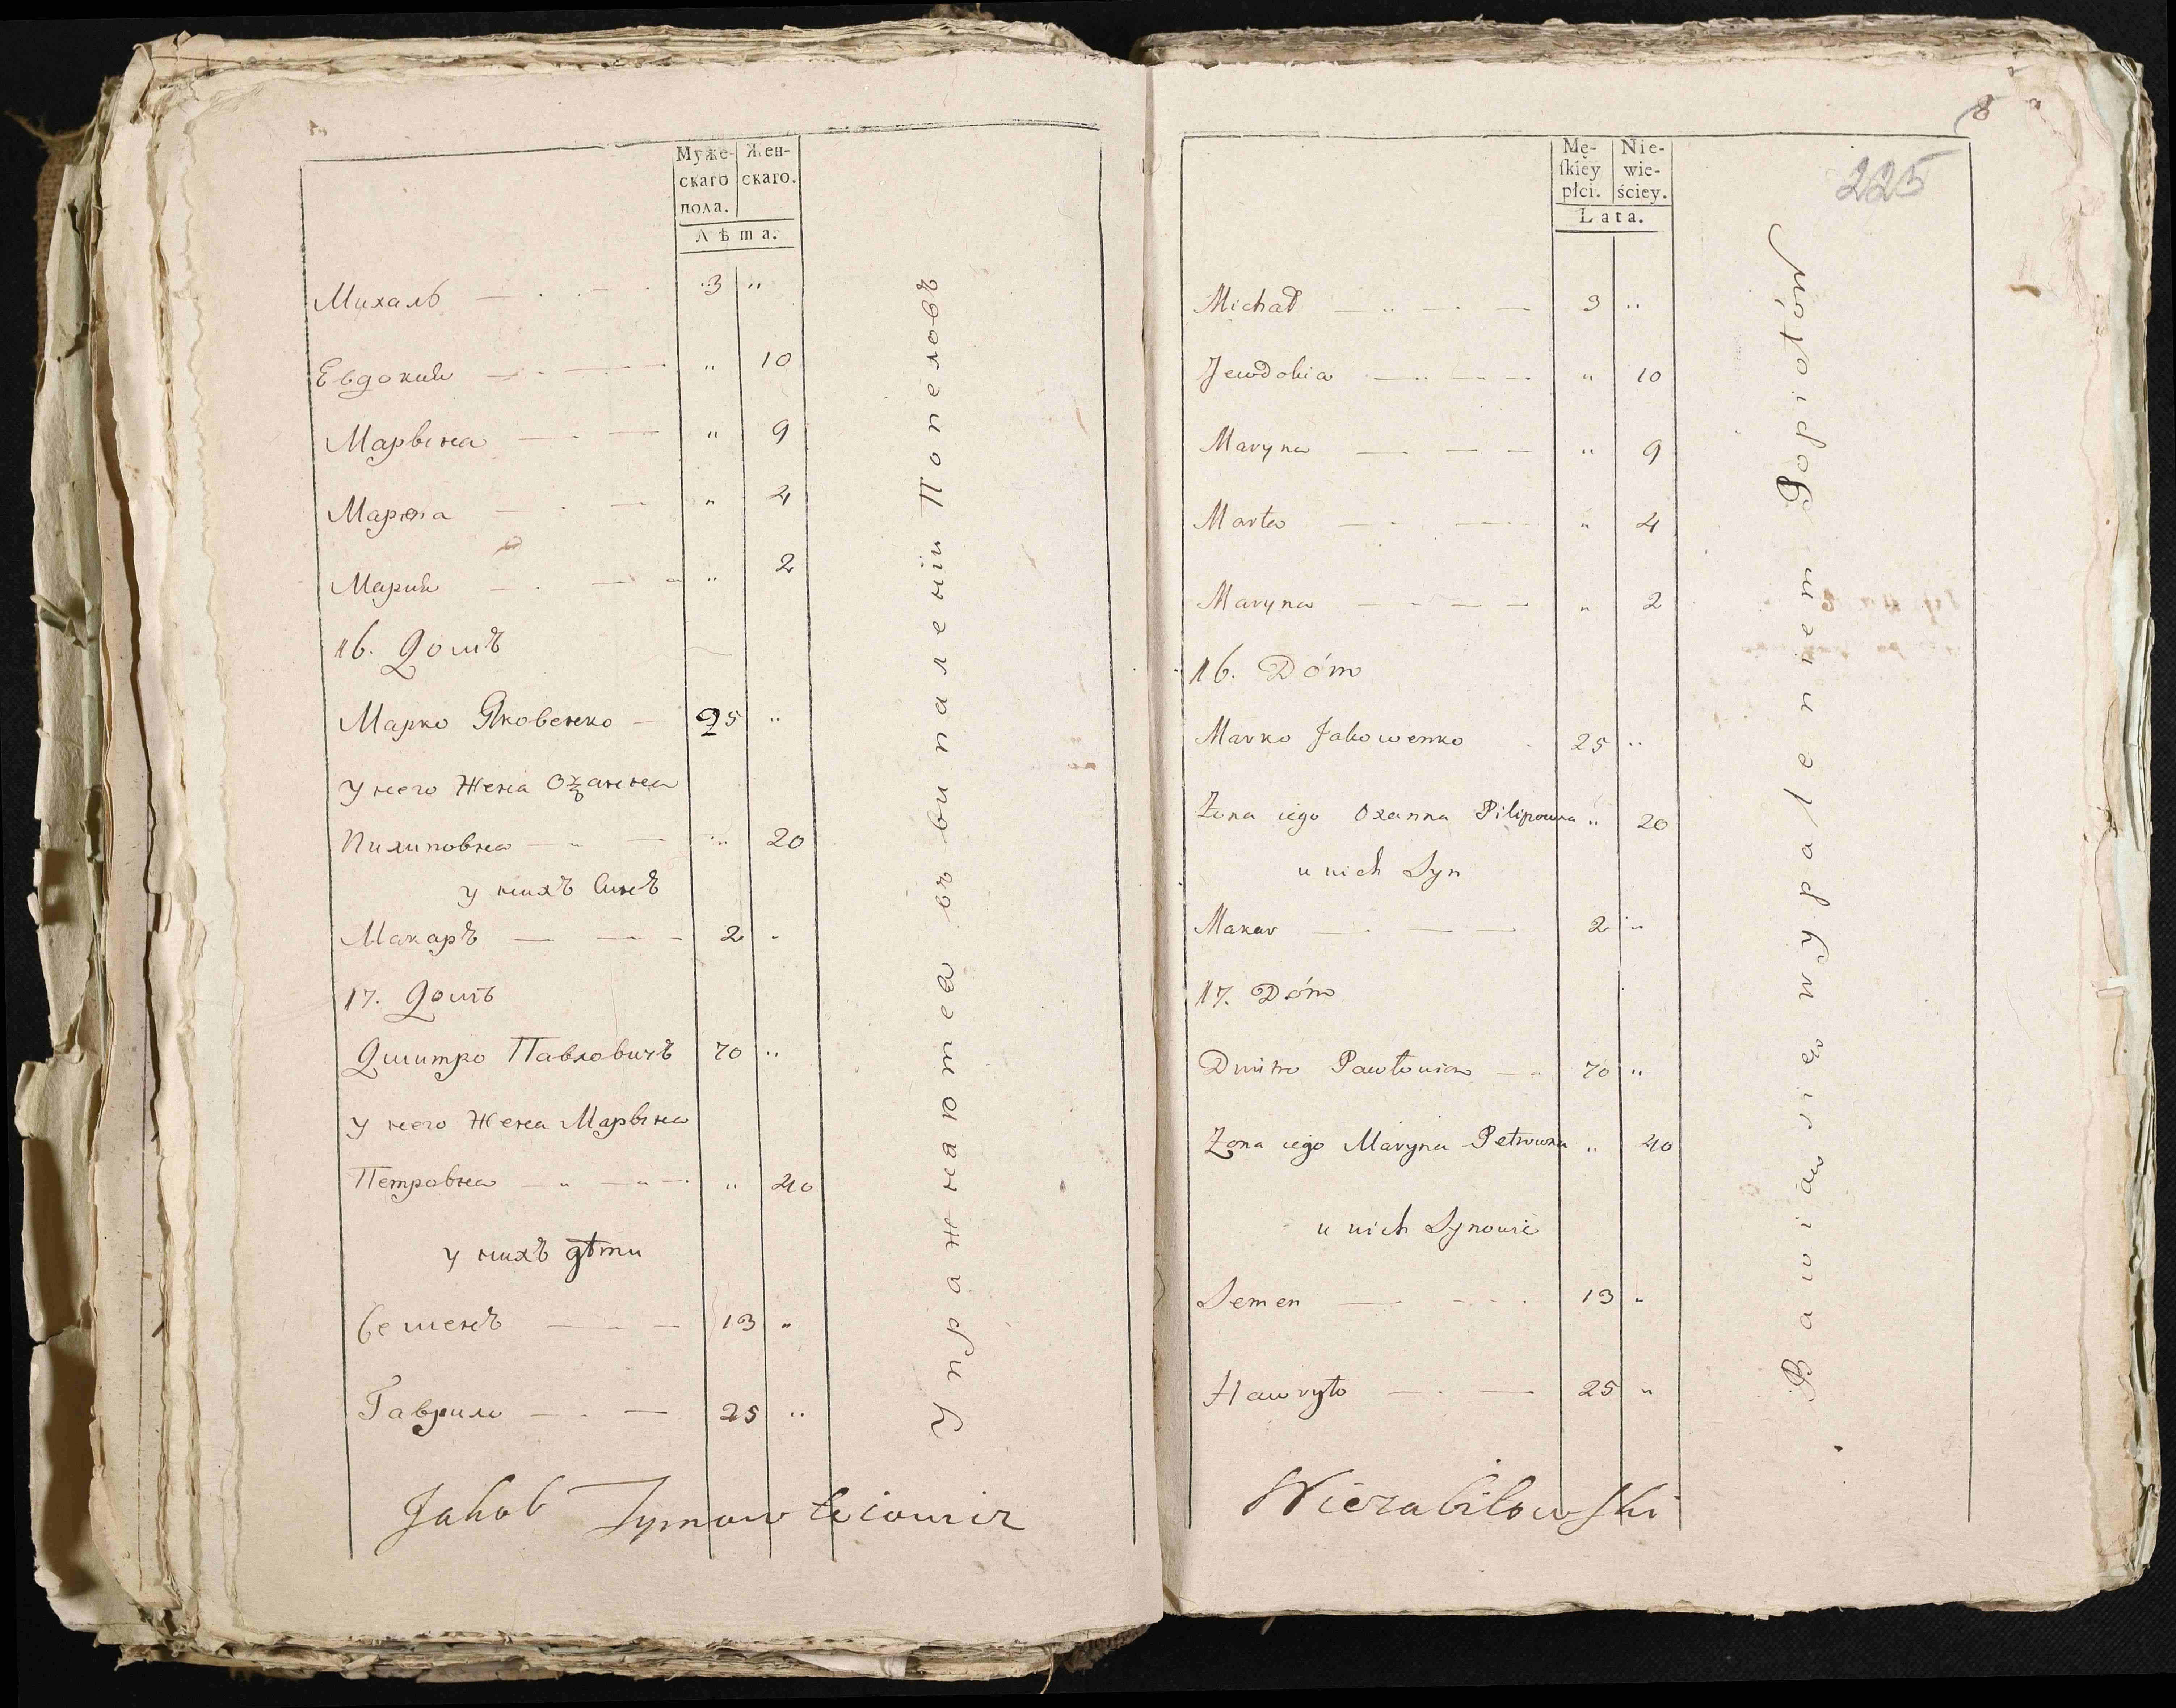 Муже- Жен-
скаго скаго.
пола.
Лѣта.
Михалъ — · — 3 "
Евдокия — — " 10
Марьина — · — " 9
Марѳа — · — " 4
Мария — · — " 2
16. Домъ
Марко Яковенко — 25 "
У него Жена Оѯанна
Пилиповна — " — " 20
у нихъ Синъ
Макаръ — — 2 "
17. Домъ
Дмитро Павловичъ 70 "
У него Жена Марьина
Петровна — " — " — " 40
у нихъ дѣти
Семенъ — — 13 "
Гаврило — · — 25 "
Упражнаютса въ випаленіи Попеловъ
Jakob Szymowicz
8
225
Mę- Nie-
ſkiey wie-
płci. ściey.
Lata.
Michał — " — · — 3 "
Jewdokia — " — — " 10
Maryna — · — — " 9
Marta — · — " 4
Maryna — - — — " 2
16. Dóm
Marko Jakowenko 25 "
Żona iego Oxanna Pilipowna " 20
u nich Syn
Makar — · — — 2 "
17. Dóm
Dmitro Pawłowicz — 70 "
Żona iego Maryna Petrowna " 40
u nich Synowie
Semen — · — 13 "
Hawryło — · — 25 "
Bawiaw się wypaleniem Popiołów
Wierzbiłowſki